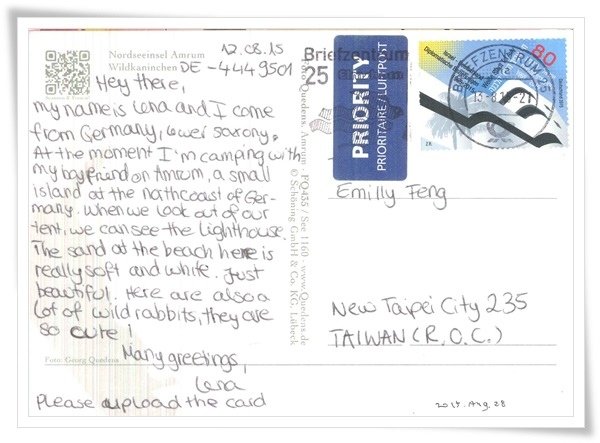 Nordseeinsel Amrum
Wildkaninchen
12.08.15
DE-4449501
Hey there,
my name is Lena and I come
from Germany, lower saxony.
At the moment I'm camping with
my boyfriend on Amrum, a small
island at the northcoast of Ger-
many. When we look out of our
tent, we can see the lighthouse
The sand at the beach here is
really soft and white. Just
beautiful. Here are also a
lot of wild rabbits, they are
so cute!
Many greetings,
Lena
Please upload the card
Foto: Georg Quedens
Foto Quedens, Amrum · PQ435 / See 1160 · www.Quedens.de
© Schöning GmbH & Co. KG, Lübeck
Briefzentrum
25
PRIORITY
PRIORITAIRE / LUFTPOST
80
BRIEFZENTRUM 25
Emilly Feng
New Taipei City 235
TAIWAN (R.O.C.)
2015. Aug. 28